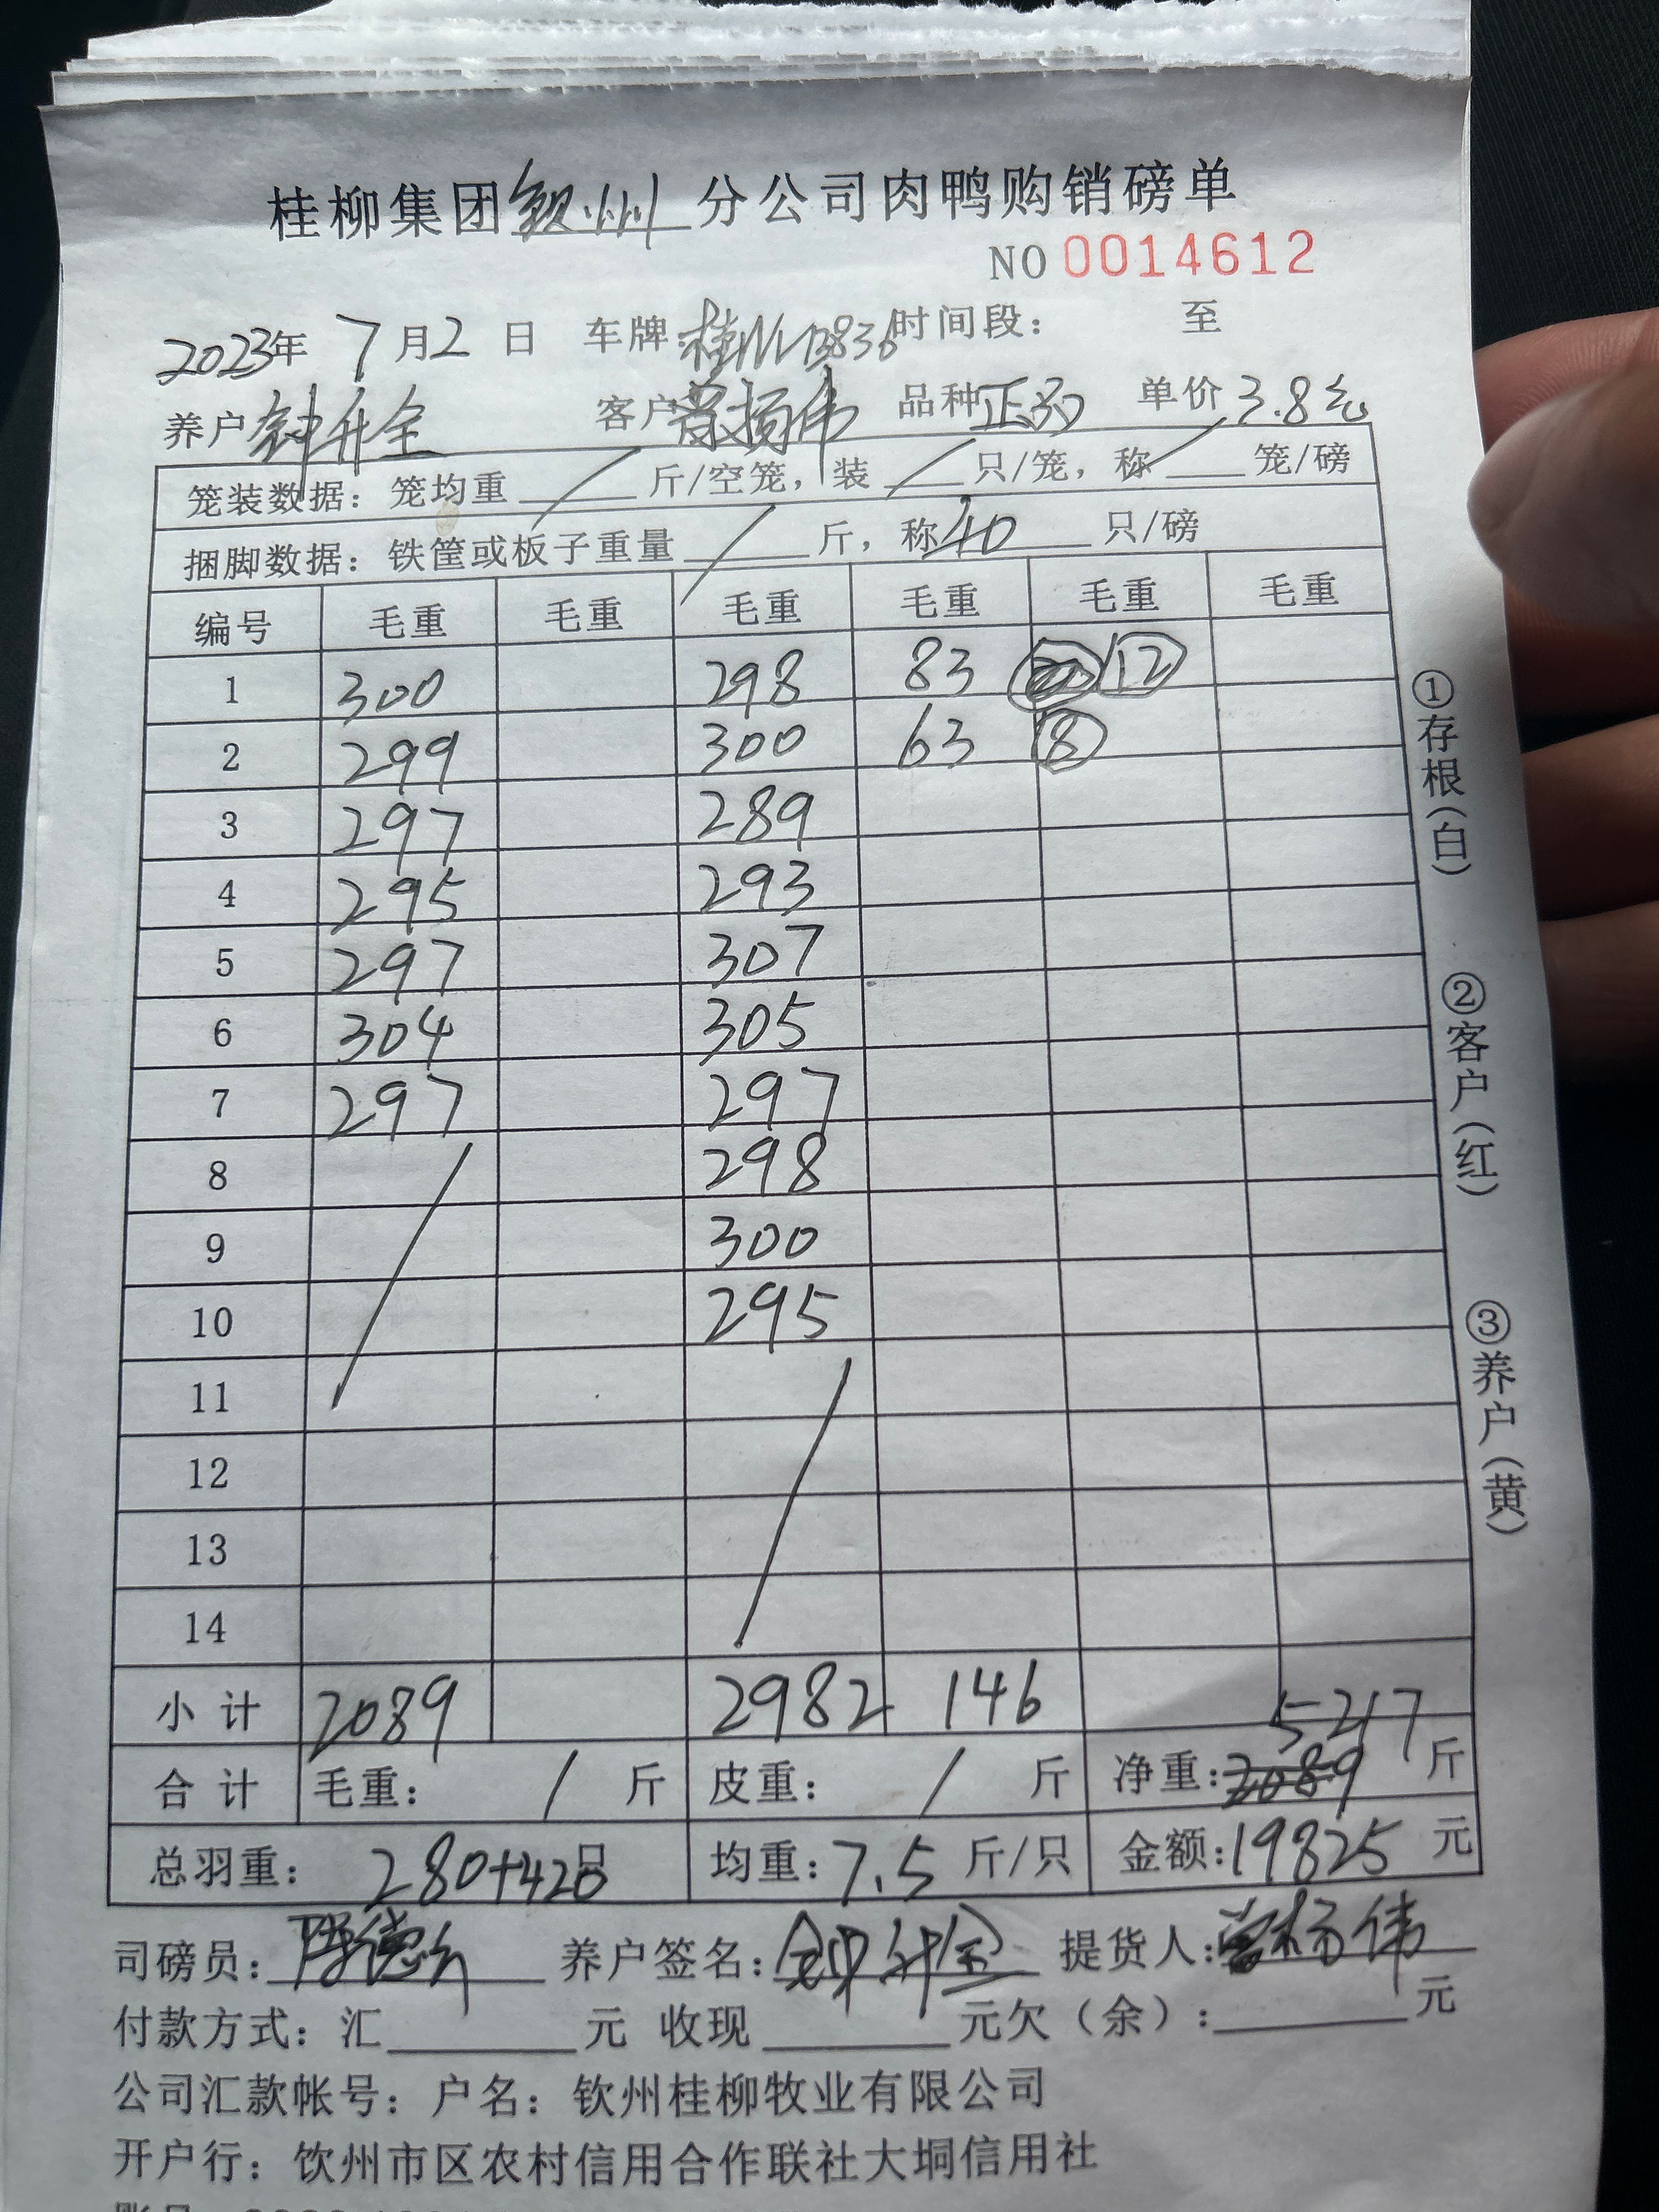 桂柳集团钦州分公司肉鸭购销磅单
NO 0014612
2023年 7月2日 车牌:桂N 3836 时间段: 至
养户 钟升全 客户 曾杨伟 品种 正 单价 3.8元
笼装数据: 笼均重 / 斤/空笼, 装 / 只/笼, 称 / 笼/磅
捆脚数据: 铁筐或板子重量 / 斤, 称 40 只/磅
编号 毛重 毛重 毛重 毛重 毛重 毛重
1 300 298 83 12
2 299 300 63 8
3 297 289
4 295 293
5 297 307
6 304 305
7 297 297
8 298
9 300
10 295
11
12
13
14
小计 2089 2982 146 5217
合计 毛重: / 斤 皮重: / 斤 净重: 2089 斤
总羽重: 280+420只 均重: 7.5 斤/只 金额: 19825 元
司磅员: 陈德 养户签名: 钟升全 提货人: 曾杨伟
付款方式: 汇 元 收现 元欠(余): 元
公司汇款帐号: 户名: 钦州桂柳牧业有限公司
开户行: 饮州市区农村信用合作联社大垌信用社
①存根(白) ②客户(红) ③养户(黄)